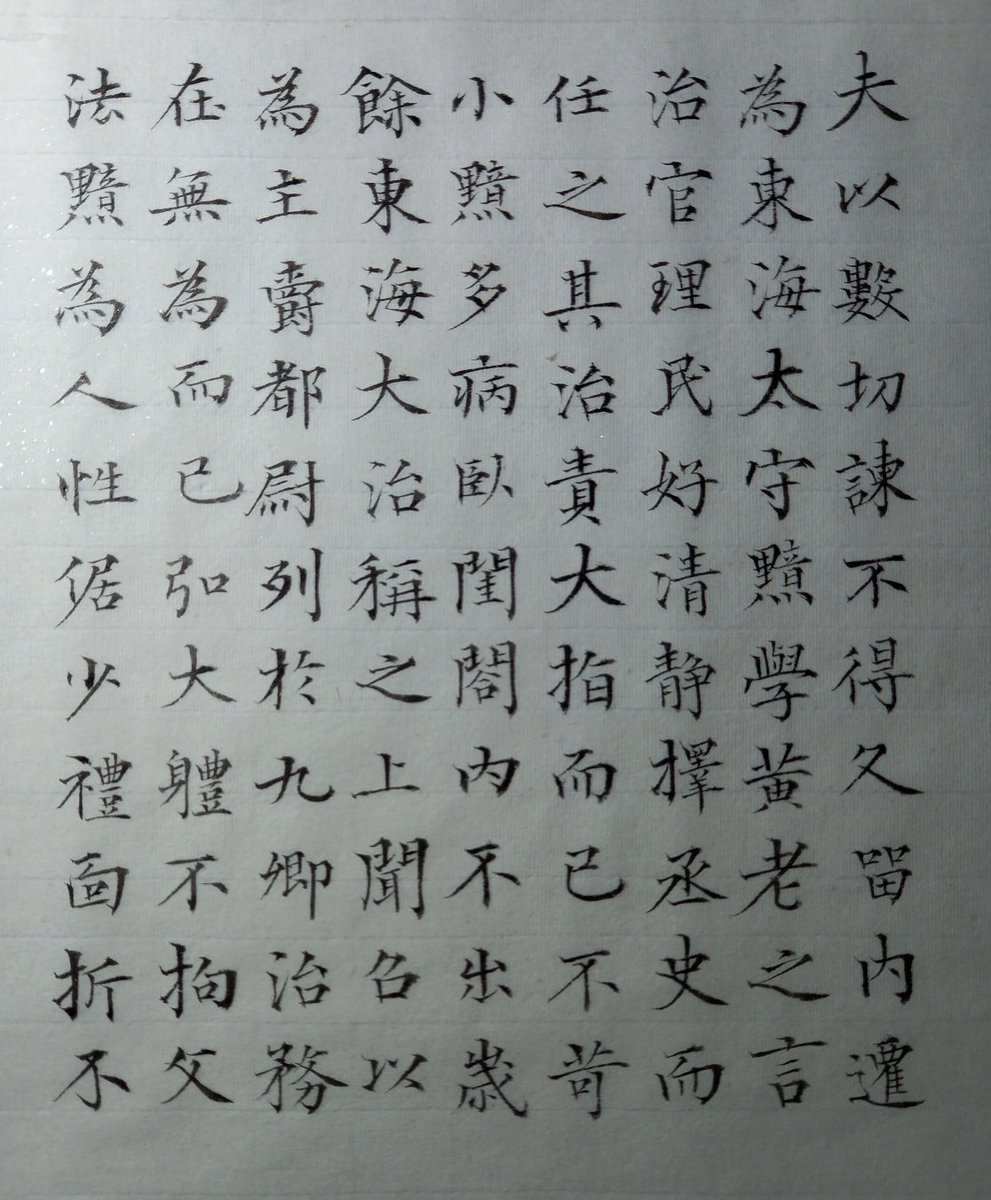 夫以數切諫不得久留内遷
為東海太守黯學黃老之言
治官理民好清静擇丞史而
任之其治責大指而已不苛
小黯多病臥閨閤内不出歲
餘東海大治稱之上聞召以
為主爵都尉列於九卿治務
在無為而已弘大軆不拘文
法黯為人性倨少禮面折不